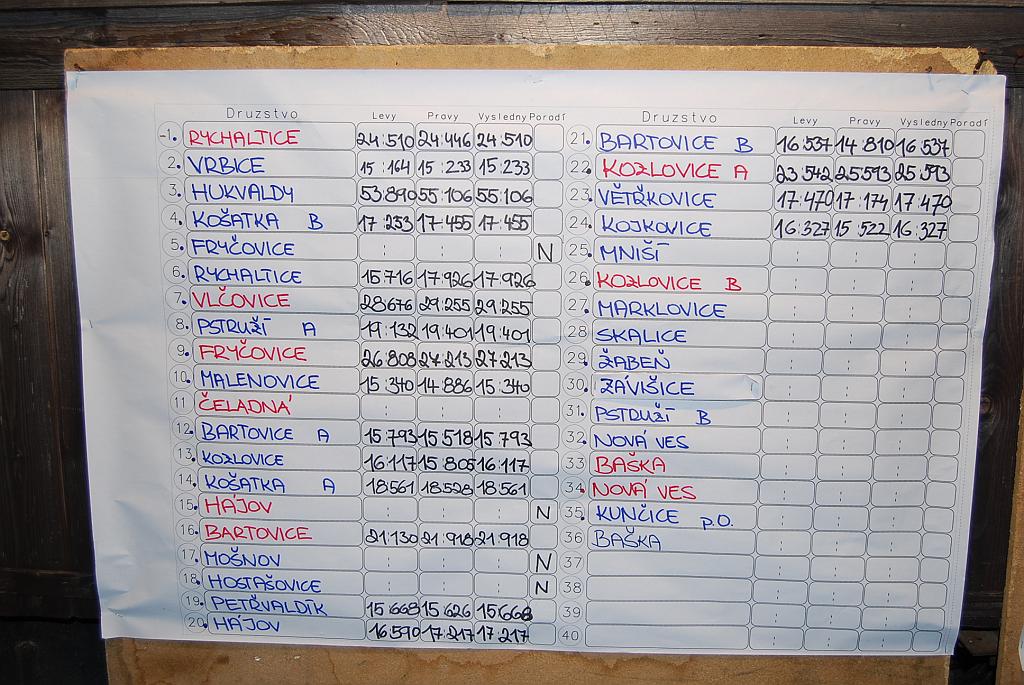 Druzstvo Levy Pravy Vysledny Poradi
1. RYCHALTICE 24:510 24:446 24:510
2. VRBICE 15:164 15:233 15:233
3. HUKVALDY 53:890 55:106 55:106
4. KOŠATKA B 17:233 17:455 17:455
5. FRYČOVICE : : : N
6. RYCHALTICE 15:716 17:926 17:926
7. VLČOVICE 28:676 29:255 29:255
8. PSTRUŽÍ A 19:132 19:401 19:401
9. FRYČOVICE 26:808 27:213 27:213
10. MALENOVICE 15:340 14:886 15:340
11 ČELADNÁ : : :
12. BARTOVICE A 15:793 15:518 15:793
13. KOZLOVICE 16:117 15:805 16:117
14. KOŠATKA A 18:561 18:528 18:561
15. HÁJOV : : : N
16. BARTOVICE 21:130 21:918 21:918
17. MOŠNOV : : : N
18. HOSTAŠOVICE : : : N
19. PETŘVALDÍK 15:668 15:626 15:668
20. HÁJOV 16:590 17:217 17:217
Druzstvo Levy Pravy Vysledny Poradi
21. BARTOVICE B 16:537 14:810 16:537
22. KOZLOVICE A 23:542 25:593 25:593
23. VĚTŘKOVICE 17:470 17:174 17:470
24. KOJKOVICE 16:327 15:522 16:327
25. MNIŠÍ : : :
26. KOZLOVICE B : : :
27. MARKLOVICE : : :
28 SKALICE : : :
29. ŽABEŇ : : :
30. ZÁVIŠICE : : :
31. PSTRUŽÍ B : : :
32. NOVÁ VES : : :
33 BAŠKA : : :
34. NOVÁ VES : : :
35. KUNČICE p.O. : : :
36 BAŠKA : : :
37 : : :
38 : : :
39 : : :
40 : : :